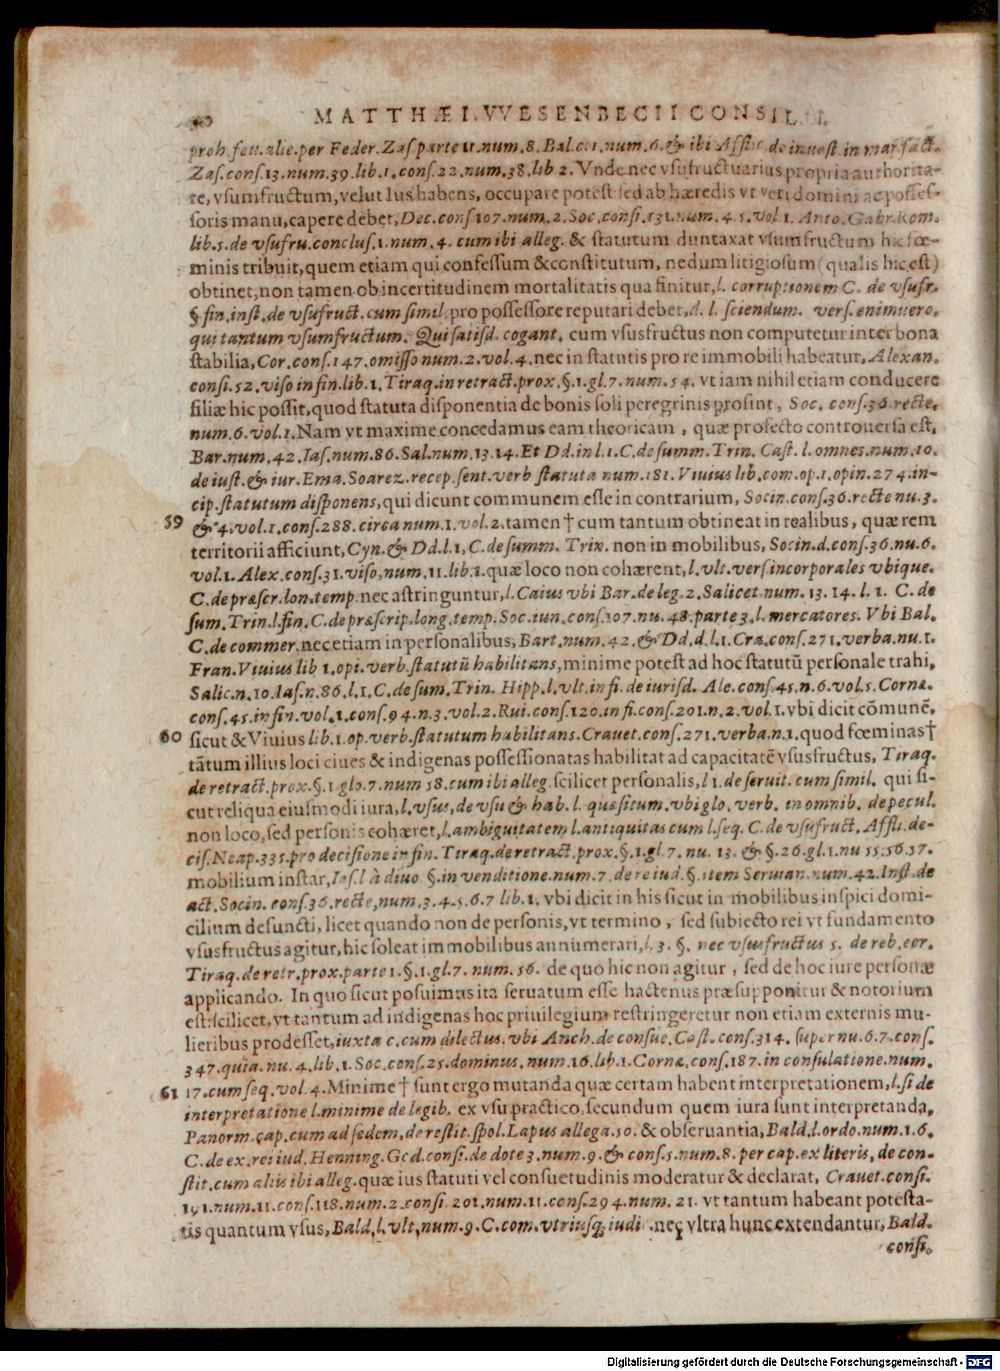 MATTHÆI. VVESENBECII CONSIL. I.
proh. feu. alie. per Feder. Zas parte 11. num. 8. Bal. c. 1. num. 6. & ibi Afflic. de inuest. in mar. fact.
Zas. cons. 13. num. 39. lib. 1. cons. 22. num. 38. lib 2. Vnde nec vsufructuarius propria authorita-
te, vsumfructum, velut Ius habens, occupare potest sed ab hæredis vt veri domini ac posses-
soris manu, capere debet, Dec. cons. 107. num. 2. Soc. consi. 131. num. 4. 5. vol. 1. Anto. Gabr. Rom.
lib. 5. de vsufru. conclus. 1. num. 4. cum ibi alleg. & statutum duntaxat vsumfructum hic fœ-
minis tribuit, quem etiam qui confessum & constitutum, nedum litigiosum (qualis hic est)
obtinet, non tamen ob incertitudinem mortalitatis qua finitur, l. corruptionem C. de vsufr.
§ fin. inst. de vsufruct. cum simil. pro possessore reputari debet, d. l. sciendum. vers. enimuero.
qui tantum vsumfructum. Qui satisd. cogant. cum vsusfructus non computetur inter bona
stabilia, Cor. cons. 147. omisso num. 2. vol. 4. nec in statutis pro re immobili habeatur, Alexan.
consi. 52. viso in fin. lib. 1. Tiraq. in retract. prox. §. 1. gl. 7. num. 54. vt iam nihil etiam conducere
filiæ hic possit, quod statuta disponentia de bonis soli peregrinis prosint, Soc. cons. 36. recte.
num. 6. vol. 1. Nam vt maxime concedamus eam theoricam, quæ profecto controuersa est,
Bar. num. 42. Ias. num. 86. Sal. num. 13. 14. Et Dd. in l. 1. C. de summ. Trin. Cast. l. omnes. num. 10.
de iust. & iur. Ema. Soarez. recep. sent. verb statuta num. 181. Viuius lib. com. op. 1. opin. 274. in-
cip. statutum disponens, qui dicunt communem esse in contrarium, Socin. cons. 36. recte nu. 3.
59 & 4. vol. 1. cons. 288. circa num. 1. vol. 2. tamen † cum tantum obtineat in realibus, quæ rem
territorii afficiunt, Cyn. & Dd. l. 1, C. de summ. Trix. non in mobilibus, Socin. d. cons. 36. nu. 6.
vol. 1. Alex. cons. 31. viso, num. 11. lib. 1. quæ loco non cohærent, l. vlt. vers. incorporales vbique.
C. de præscr. lon. temp. nec astringuntur, l. Caius vbi Bar. de leg. 2. Salicet num. 13. 14. l. 1. C. de
sum. Trin. l. fin. C. de præscrip. long. temp. Soc. iun. cons. 107. nu. 48. parte 3. l. mercatores. Vbi Bal.
C. de commer. nec etiam in personalibus, Bart. num. 42. & Dd. d. l. 1. Cra. cons. 271. verba. nu. 1.
Fran. Viuius lib 1. opi. verb. statutū habilitans, minime potest ad hoc statutū personale trahi,
Salic. n. 10. Ias. n. 86. l. 1. C. de sum. Trin. Hipp. l. vlt. in fi. de iurisd. Ale. cons. 45. n. 6. vol. 5. Corne.
cons. 45. in fin. vol. 1. cons. 94. n. 3. vol. 2. Rui. cons. 120. in fi. cons. 201. n. 2. vol. 1. vbi dicit cōmunē,
60 sicut & Viuius lib. 1. op. verb. statutum habilitans. Crauet. cons. 271. verba. n. 1. quod fœminas †
tātum illius loci ciues & indigenas possessionatas habilitat ad capacitatē vsusfructus, Tiraq.
de retract. prox. §. 1. glo. 7. num 58. cum ibi alleg. scilicet personalis, l 1. de seruit. cum simil. qui si-
cut reliqua eiusmodi iura, l. vsus, de vsu & hab. l. quæsitum. vbi glo. verb. in omnib. de pecul.
non loco, sed personis cohæret, l. ambiguitatem l. antiquitas cum l. seq. C. de vsufruct. Affli. de-
cis. Neap. 335. pro decisione in fin. Tiraq. de retract. prox. §. 1. gl. 7. nu. 13. & §. 26. gl. 1. nu 55. 56. 57.
mobilium instar, Ias. l à diuo §. in venditione. num. 7. de re iud. §. item Seruian. num. 42. Inst. de
act. Socin. cons. 36. recte, num. 3. 4. 5. 6. 7 lib. 1. vbi dicit in his sicut in mobilibus inspici domi-
cilium defuncti, licet quando non de personis, vt termino, sed subiecto rei vt fundamento
vsusfructus agitur, hic soleat immobilibus annumerari, l. 3. §. nec vsusfructus 5. de reb. eor.
Tiraq. de retr. prox. parte 1. §. 1. gl. 7. num. 56. de quo hic non agitur, sed de hoc iure personæ
applicando. In quo sicut posuimus ita seruatum esse hactenus præsupponitur & notorium
est: scilicet, vt tantum ad indigenas hoc priuilegium restringeretur non etiam externis mu-
lieribus prodesset, iuxta c. cum dilectus. vbi Anch. de consue. Cast. cons. 314. super nu. 6. 7. cons.
347. quia. nu. 4. lib. 1. Soc. cons. 25. dominus. num. 16. lib. 1. Corne. cons. 187. in consulatione. num.
61 17. cum seq. vol. 4. Minime † sunt ergo mutanda quæ certam habent interpretationem, l. si de
interpretatione l. minime de legib. ex vsu practico, secundum quem iura sunt interpretanda,
Panorm. cap. cum ad sedem, de restit. spol. Lapus allega. 50. & obseruantia, Bald. l. ordo. num. 1. 6.
C. de ex. rei iud. Henning. God. consi. de dote 3. num. 9. & cons. 5. num. 8. per cap. ex literis, de con-
stit. cum aliis ibi alleg. quæ ius statuti vel consuetudinis moderatur & declarat, Crauet. consi.
191. num. 11. cons. 118. num. 2. consi. 201. num. 11. cons. 294. num. 21. vt tantum habeant potesta-
tis quantum vsus, Bald. l. vlt, num. 9. C. com. vtriusq; iudi. neq; vltra hunc extendantur, Bald.
consi.
Digitalisierung gefördert durch die Deutsche Forschungsgemeinschaft - DFG